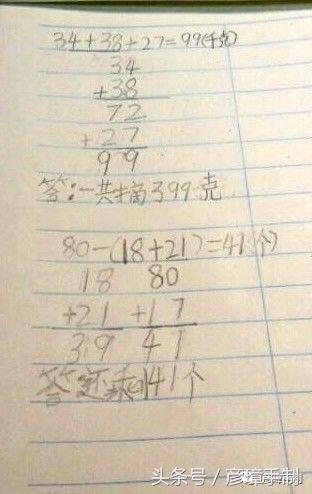 34+38+27=99(千克)
34
+38
72
+27
99
答:一共摘了99克
80-(18+21)=41个)
18 80
+21 +17
39 41
答:还剩41个
头条号／彦璋手制